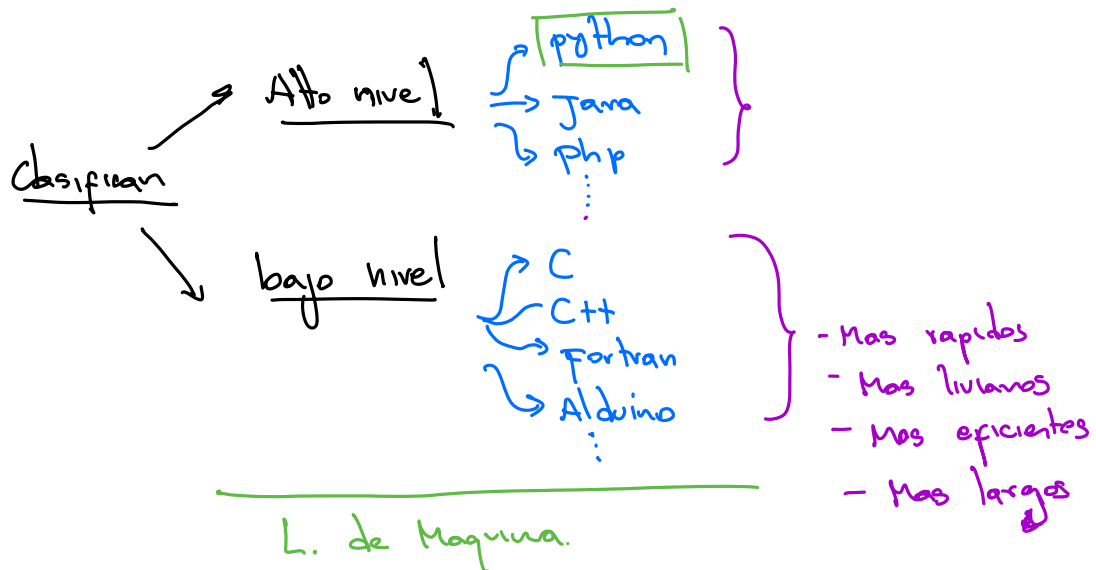 Clasifican
Alto nivel
python
Java
php
bajo nivel
C
C++
Fortran
Alduino
- Mas rapidos
- Mas livianos
- Mas eficientes
- Mas largos
L. de Maquina.